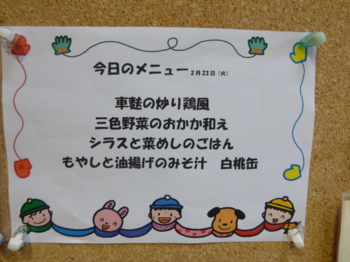 今日のメニュー 2月23日(火)
車麩の炒り鶏風
三色野菜のおかか和え
シラスと菜めしのごはん
もやしと油揚げのみそ汁 白桃缶